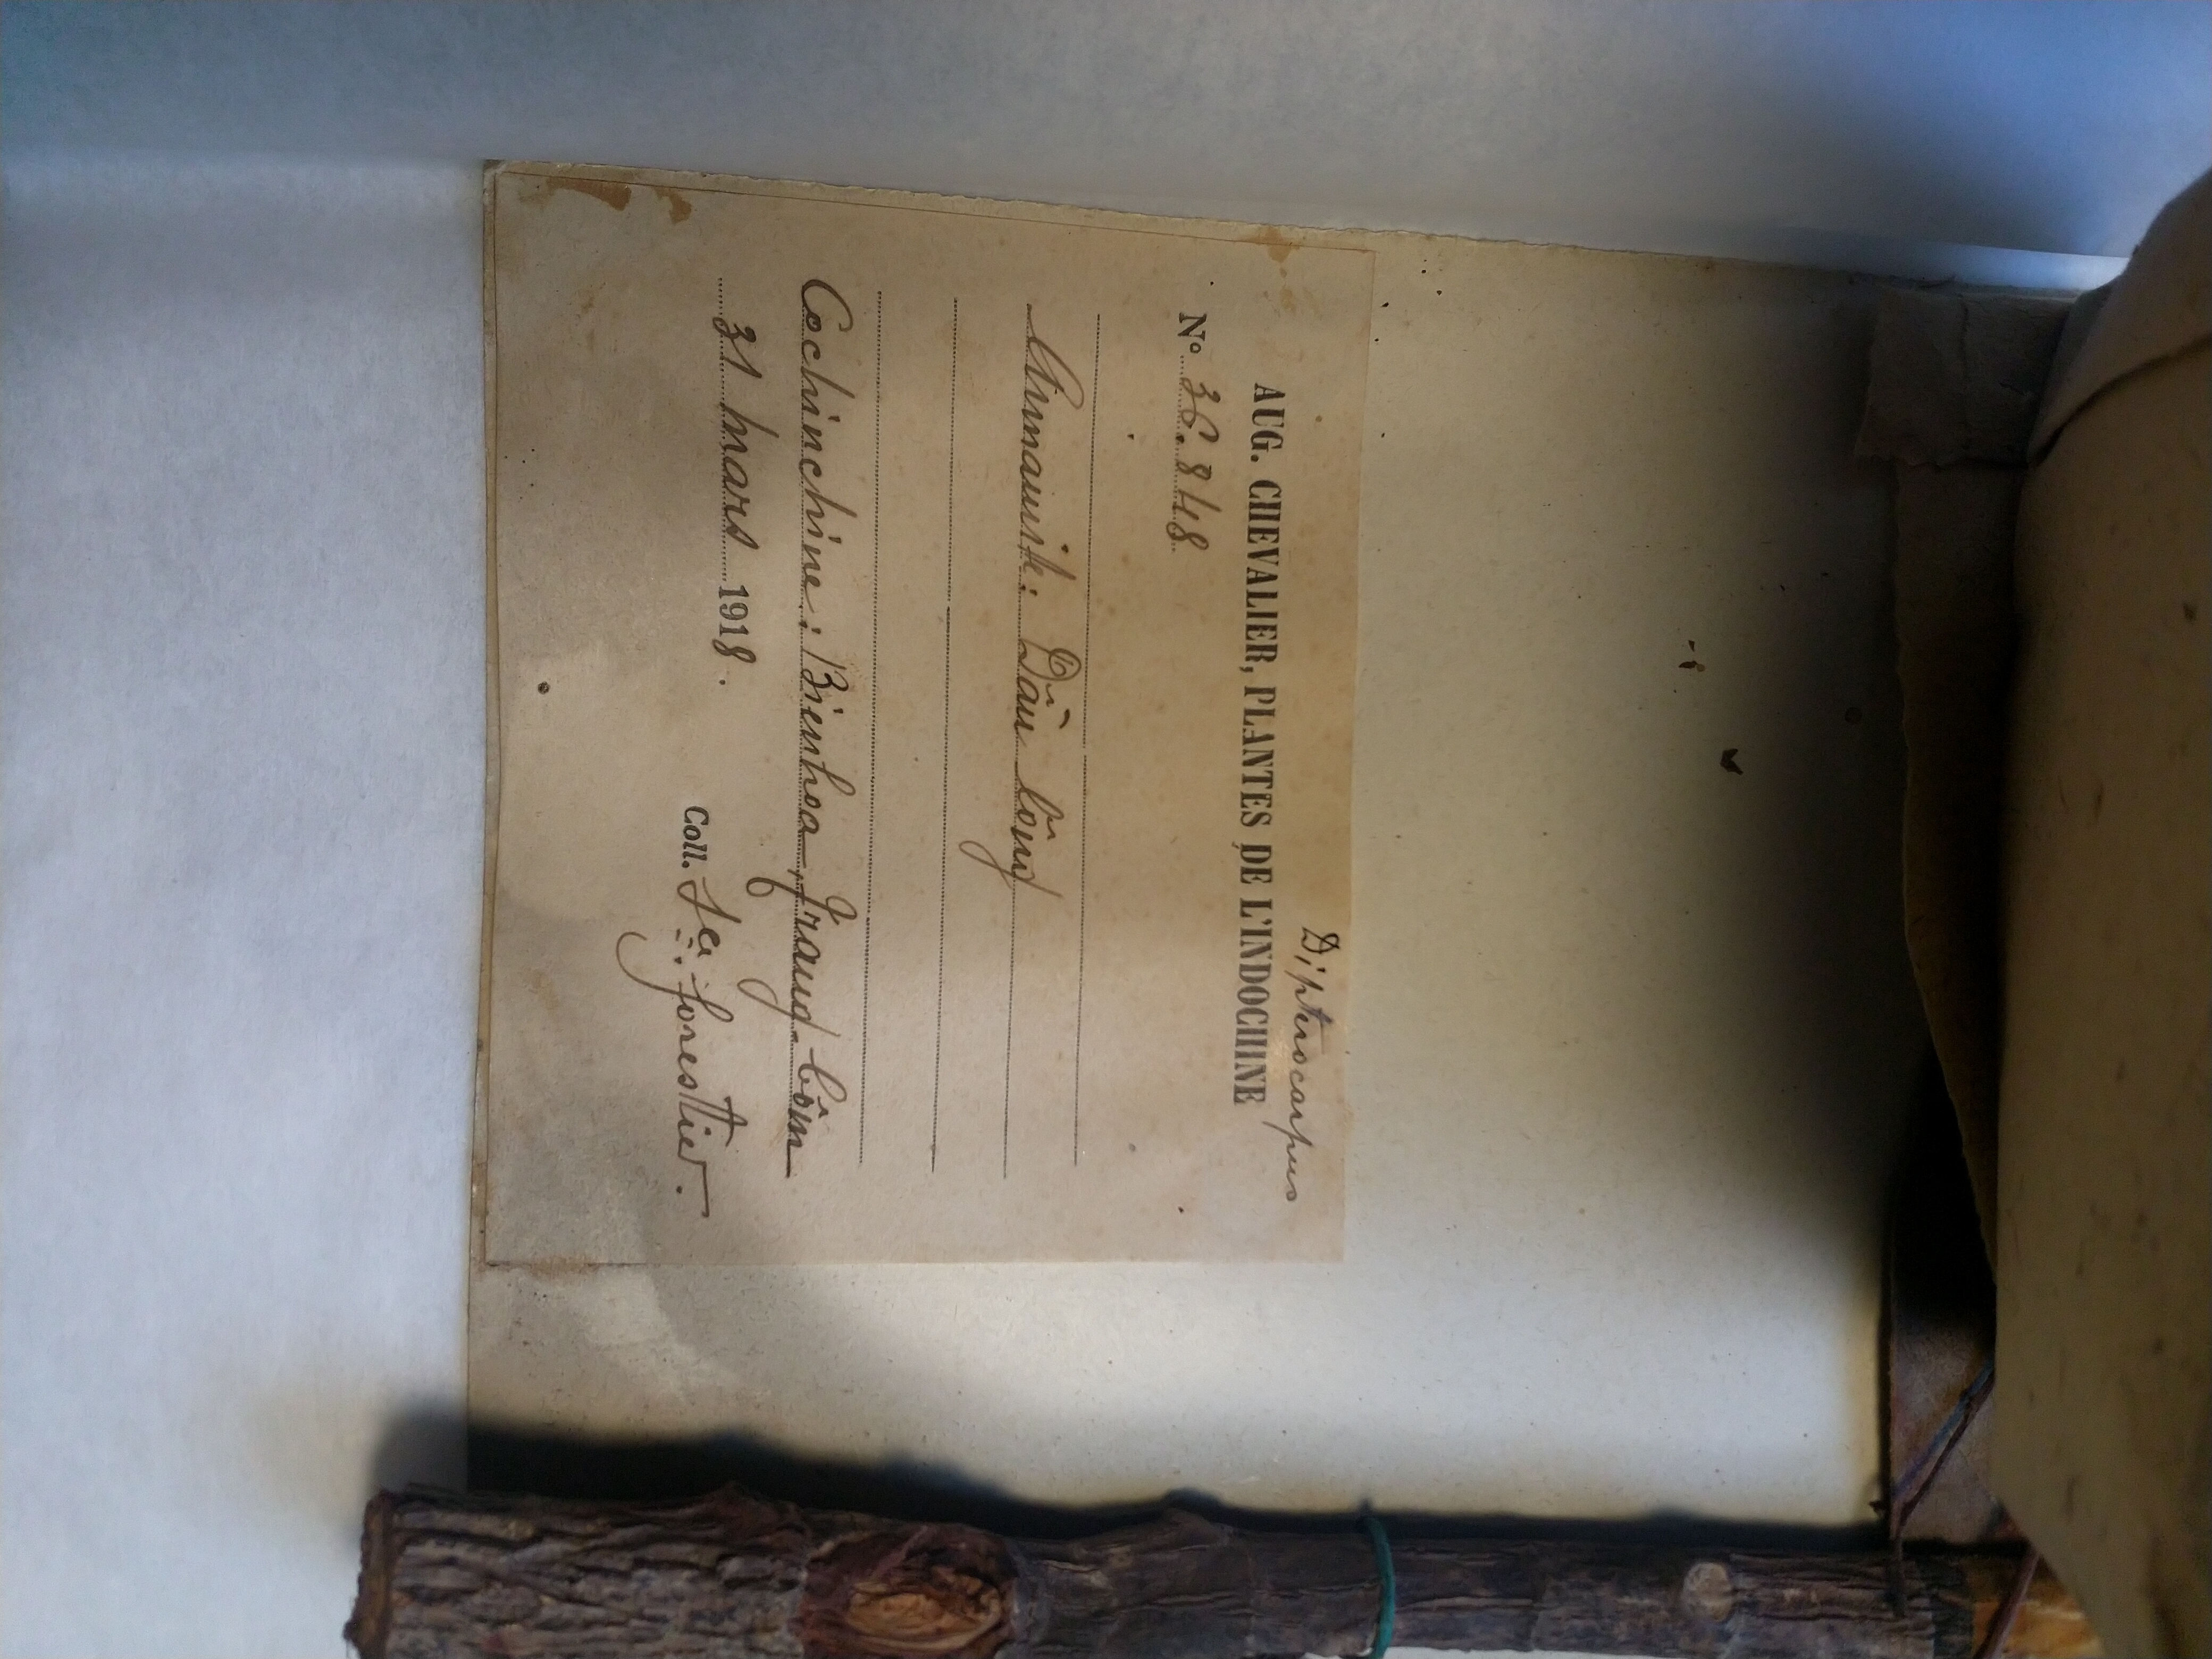 Dipterocarpus
AUG. CHEVALIER, PLANTES DE L'INDOCHINE
N° 36.848
Annamite: Dầu lông
Cochinchine: Bienhoa,
31 mars 1918.
Coll. forestier.